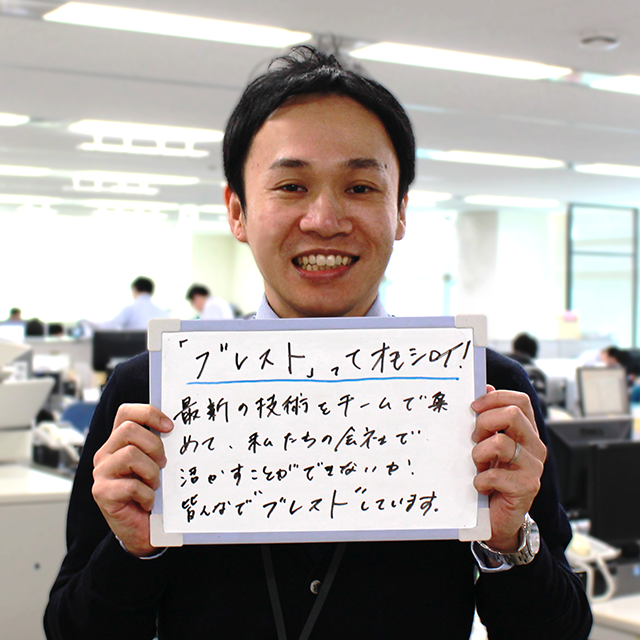 「ブレスト」ってオモシロイ!
最新の技術をチームで集
めて、私たちの会社で
活かすことができないか!
皆んなで"ブレスト"しています。